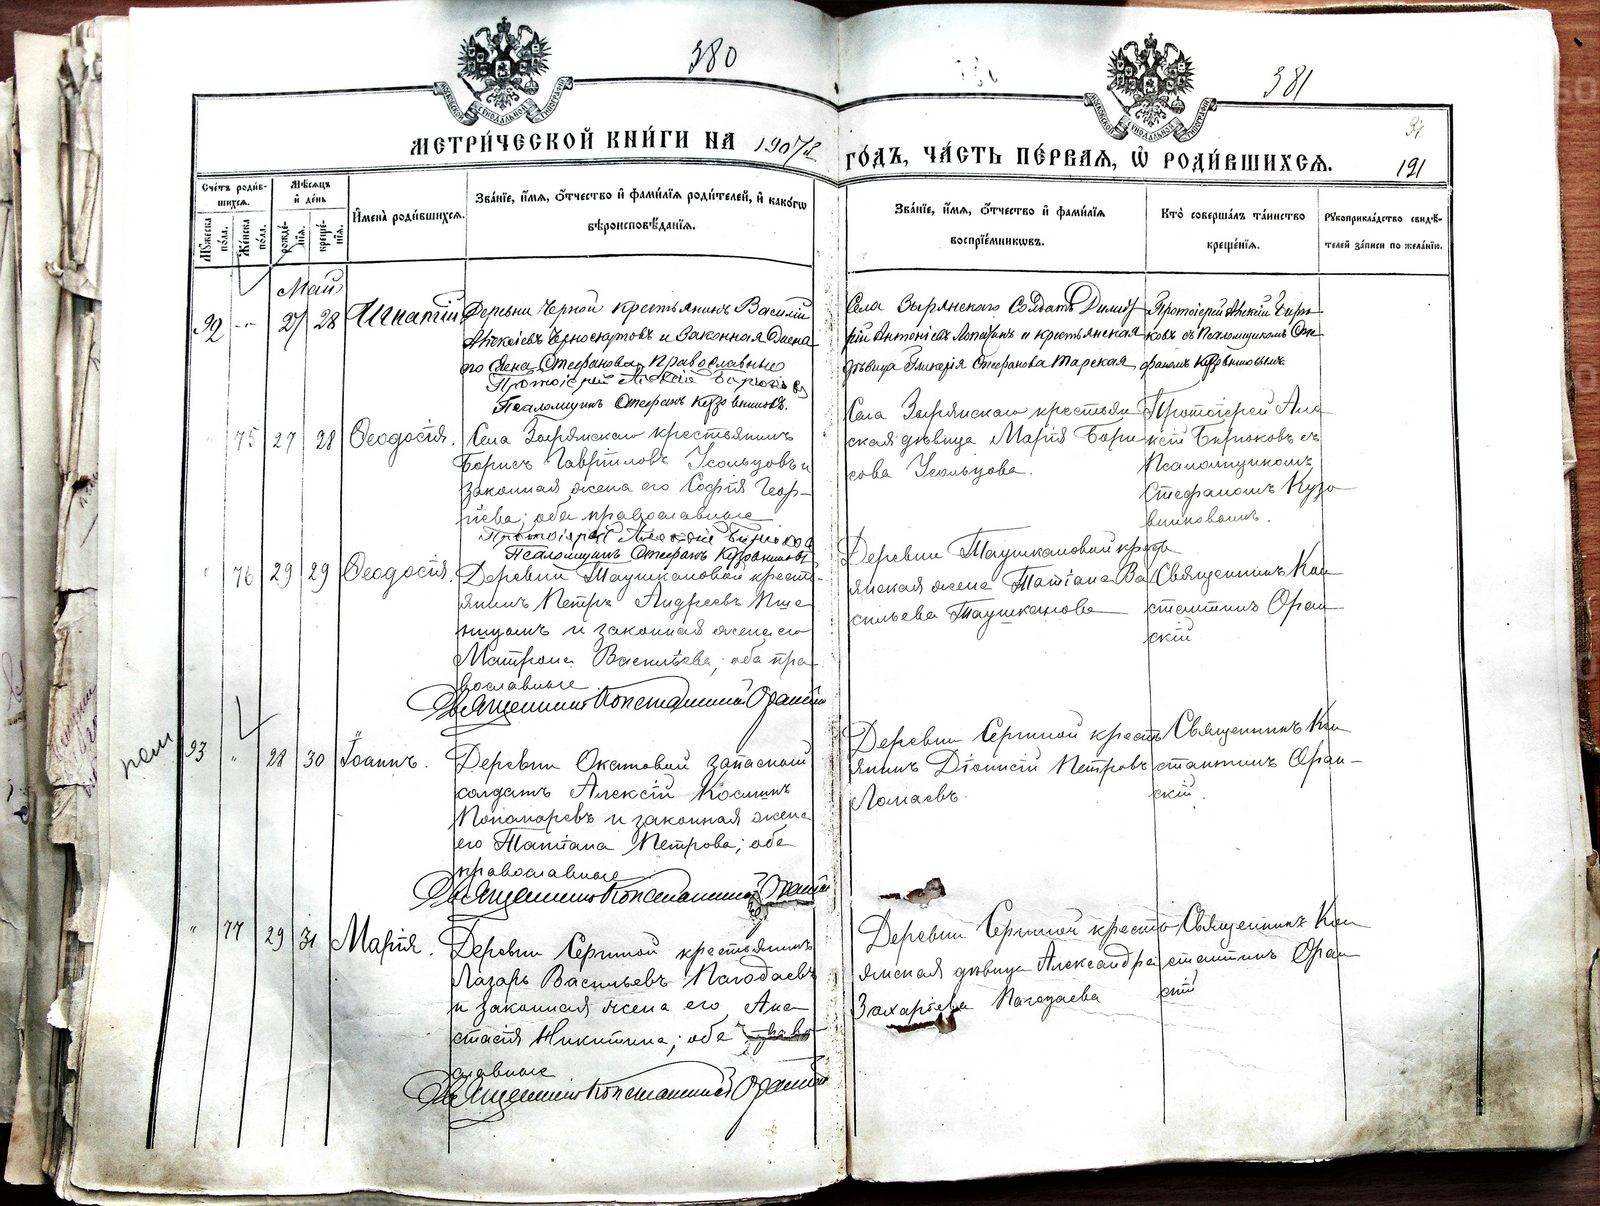 380
381
МЕТРИ́ЧЕСКОЙ КНИ́ГИ НА 1907й
ГО́ДЪ, ЧА́СТЬ ПЕ́РВАЯ, Ѡ҆ РОДИ́ВШИХСЯ.
191
Сче́тъ роди́в-
шихся.
Мѣ́сяцъ
и҆ де́нь
И҆мена̀ роди́вшихся.
Зва́нїе, и҆́мя, ѻ҆́тчество и҆ фами́лїя роди́телей, и҆ како́гѡ
вѣроисповѣ́данїя.
Мꙋ́жеска
по́ла.
Же́нска
по́ла.
рожде́-
нїя.
креще́-
нїя.
Зва́нїе, и҆́мя, ѻ҆́тчество и҆ фами́лїя
воспрїе́мникѡвъ.
Кто̀ соверша́лъ та́инство
креще́нїя.
Рꙋкоприкла́дство свидѣ́-
телей за́писи по жела́нїю.
Май
92 -„- 27 28 Игнатій
Деревни Черной крестьянинъ Василій
Алексіевъ Черноскутовъ и законная жена
его Елена Стефанова, Православные
Протоіерей Алексій Бирюковъ
Псаломщикъ Стефанъ Кузовниковъ.
Села Зырянскаго Солдатъ Димит
рій Антоніевъ Лопатинъ и крестьянская
дѣвица Гликерія Стефанова Тарская
Протоіерей Алексій Бирю
ковъ съ Псаломщикомъ Сте
фаномъ Кузовниковымъ
„ 75 27 28 Ѳеодосія.
Села Зырянскаго крестьянинъ
Борисъ Гавріиловъ Усольцовъ и
законная жена его Софія Геор-
гіева; оба православные
Протоіерей Алексій Бирюков
Псаломщикъ Стефанъ Кузовниковъ
Села Зырянскаго крестьян
ская дѣвица Марія Бори
сова Усольцова.
Протоіерей Але
ксій Бирюковъ съ
Псаломщикомъ
Стефаномъ Кузо
вниковымъ.
„ 76 29 29 Ѳеодосія.
Деревни Таушкановой кресть-
янинъ Петръ Андреевъ Пше
ницынъ и законная жена его
Матрона Васильева; оба пра
вославные
Священникъ Константинъ Оранскій
Деревни Таушкановой кресть
янская жена Татіана Ва
сильева Таушканова
Священникъ Кон
стантинъ Оран
скій
93 „ 28 30 Іоаннъ.
Деревни Окатовой запасный
солдатъ Алексій Космин
Пономаревъ и законная жена
его Татіана Петрова; оба
православные
Священникъ Константинъ Оранскій
Деревни Сергиной кресть
янинъ Діонисій Петровъ
Ломаевъ.
Священникъ Кон
стантинъ Оран-
скій.
„ 77 29 31 Марія.
Деревни Сергиной крестьянинъ
Лазарь Васильевъ Пагодаевъ
и законная жена его Ана
стасія Никитина; оба право
славные
Священникъ Константинъ Оранскій
Деревни Сергиной кресть
янская дѣвица Александра
Захаріева Пагодаева
Священникъ Кон
стантинъ Оран
скій